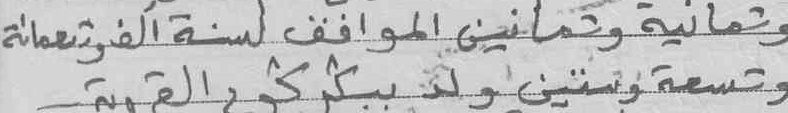 وثمانية وثمانين الموافق لسنة ألف وتسعمائة
وتسعة وستين ولد ببكركوع القرية